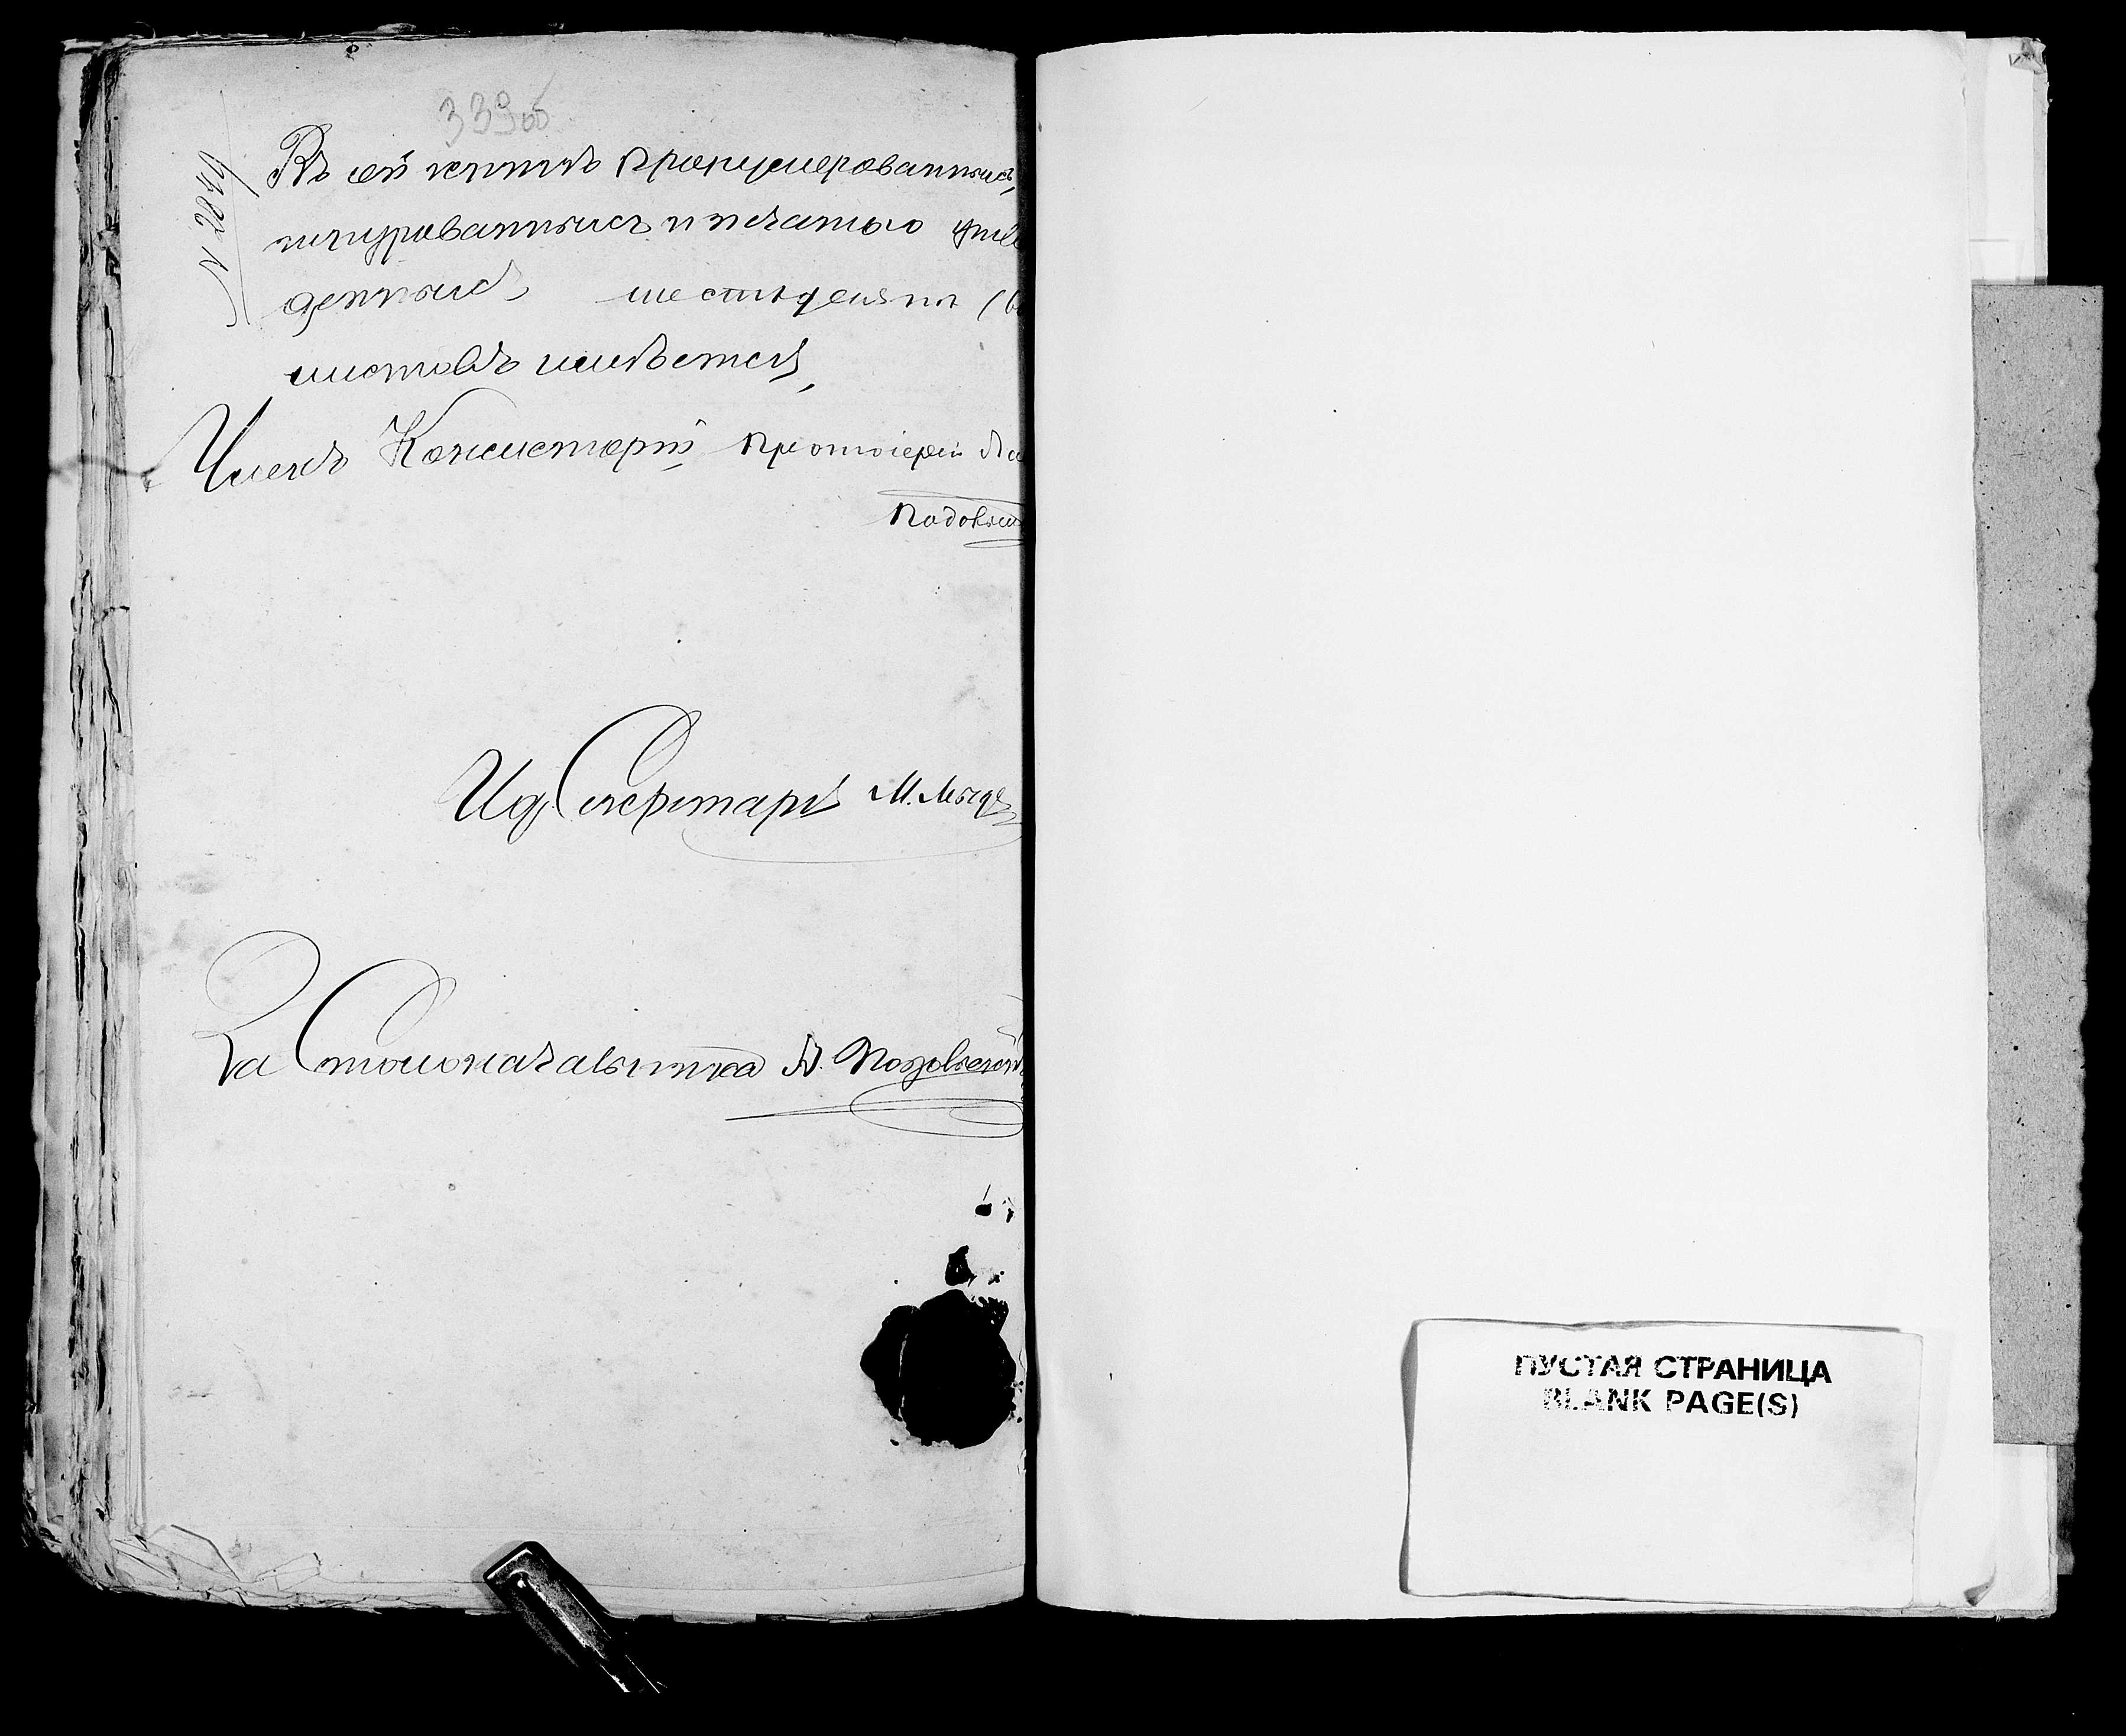 339об
№ 2849
Въ сей книгѣ пронумерованныхъ,
шнурованныхъ и печатью утвер
жденныхъ шестьдесятъ (60
листовъ имѣется,
Членъ Консисторіи Протоіерей
Ид. Секретаря М.
За Столоначальника А.
ПУСТАЯ СТРАНИЦА
BLANK PAGE(S)